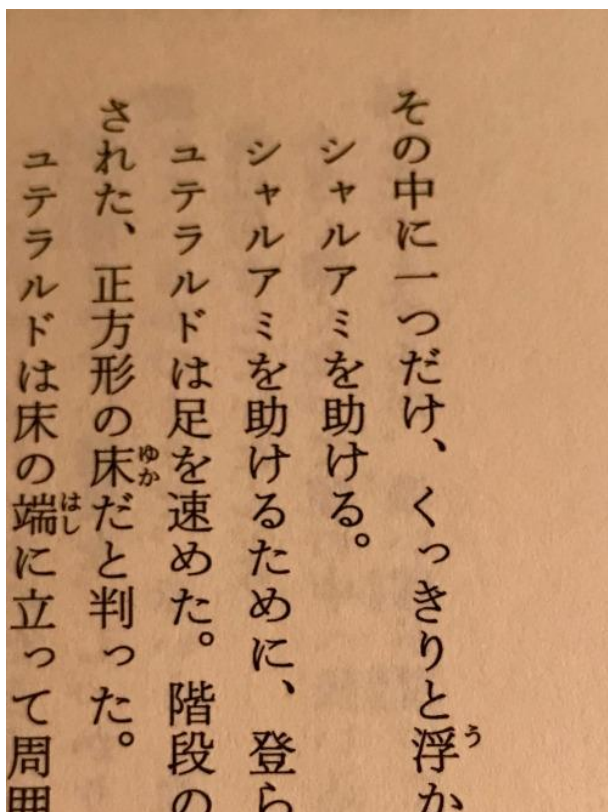 その中に一つだけ、くっきりと浮か
シャルアミを助ける。
シャルアミを助けるために、登ら
ユテラルドは足を速めた。階段の
された、正方形の床だと判った。
ユテラルドは床の端に立って周囲